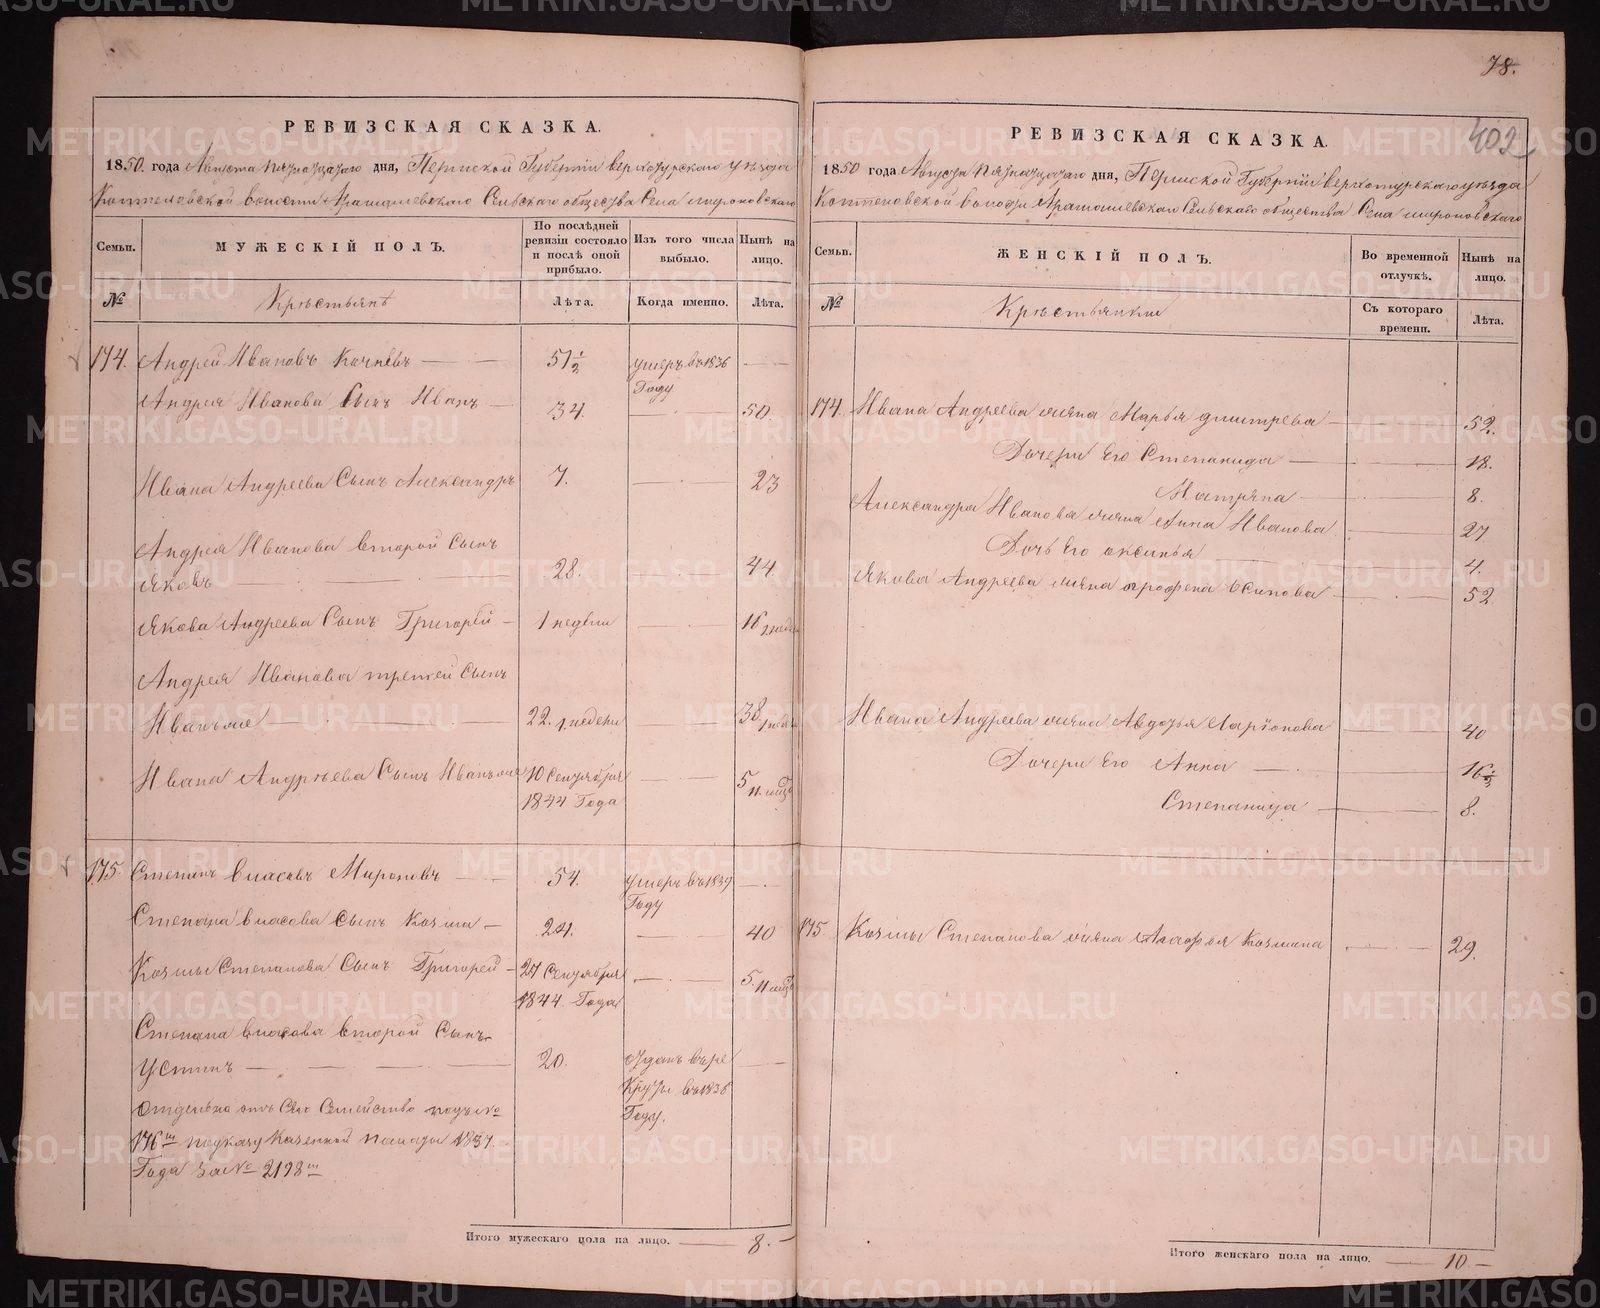 РЕВИЗСКАЯ СКАЗКА.
1850. года Августа пятнадцатаго дня, Пермской Губернiи верхотурскаго уѣзда
Коптеловской волости Арамашевскаго Сельскаго общества Села мироновскаго
Семьи.
МУЖЕСКІЙ ПОЛЪ.
По последней ревизіи состояло и послѣ оной прибыло.
Изъ того числа выбыло.
Нынѣ на лицо.
№
Крѣстьянѣ
Лѣта.
Когда именно.
Лѣта.
174. Андрей Ивановъ Кочневъ 51½ умеръ въ 1836 Году
Андрея Иванова Сынъ Иванъ 34. 50
Ивана Андреева Сынъ Александръ 7. 23
Андрея Иванова второй Сынъ
Яковъ 28. 44
Якова Андреева Сынъ Григорей 1 недѣли 16 1 неде
Андрея Иванова третей Сынъ
Иванъ же 22. 1 недели 38 1 неде
Ивана Андрѣева Сынъ Иванъ же 10 Сентября 1844 Года 5 11. мѣсц
175. Степанъ власовъ Мироновъ 54. умеръ въ 1839 Году
Степана власова Сынъ Козма 24. 40
Козмы Степанова Сынъ Григорей 27 Сентября 1844. Года 5. 11 мѣсц
Степана власова второй Сынъ
Устинъ 20. отданъ въ ре Круты въ 1836 Году.
отделено отъ Сего Семейство подъ №
176м по указу Казенной палаты 1837.
Года за № 2198м
Итого мужескаго пола на лицо. 8.
78.
402
РЕВИЗСКАЯ СКАЗКА.
1850 года Августа пятнадцатаго дня, Пермской Губернiи верхотурскаго уѣзда
Коптеловской волости Арамашевскаго Сельскаго общества Села мироновскаго
Семьи.
ЖЕНСКІЙ ПОЛЪ.
Во временной отлучкѣ.
Нынѣ на лицо.
№
Крѣстьянки
Съ котораго времени.
Лѣта.
174. Ивана Андреева жена Марья дмитрева 52.
Дочери Его Степанида 18.
Матряна 8.
Александра Иванова жена Анна Иванова 27
Дочь Его оксинья 4.
Якова Андреева жена Агрофена Осипова 52
Ивана Андреева жена Авдотья Ларiонова 40
Дочери Его Анна 16½
Степанида 8.
175. Козмы Степанова жена Агафья Козмина 29.
Итого женскаго пола на лицо. 10
METRIKI.GASO-URAL.RU